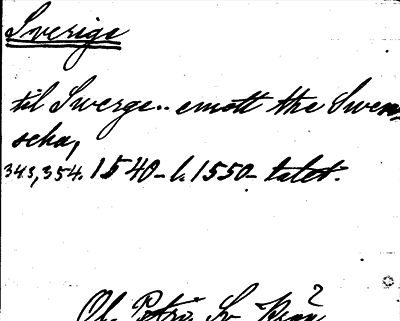 Sverige
til Swerge.. emott the Swen
scha,
343, 354. 1540- l. 1550- talet.
Ol. Petri. Sv. Krön